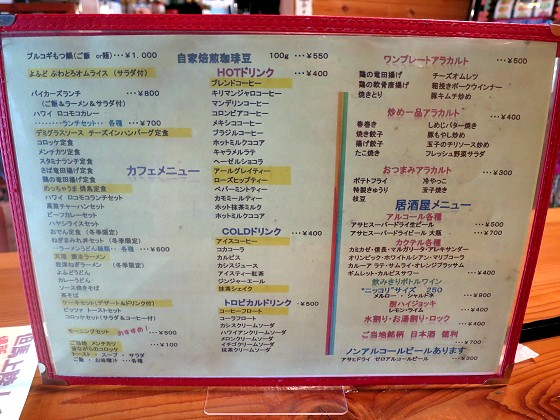 ブルコギもつ鍋(ご飯 or麺)・・・¥1.000
よふど ふわとろオムライス(サラダ付)
バイカーズランチ ・・・¥800
(ご飯&ラーメン&サラダ付)
ハワイ ロコモコカレー
........ランチセット‥ 各種 ・・・¥700
デミグラスソース チーズインハンバーグ定食
コロッケ定食
メンチカツ定食
スタミナランチ定食
さば竜田揚げ定食
鶏の竜田揚げ定食
めっちゃうま 焼鳥定食
ハワイ ロコモコランチセット
高菜チャーハンセット
ビーフカレーセット
ハヤシライスセット
おでん定食(冬季限定)
ねぎまみれ丼セット(冬季限定)
・・ラーメンうどん麺類・・ 各種 ・・・¥600
天龍 醤油ラーメン
(冬季限定)
よふどうどん
カレーうどん
ソース焼きそば
茶そば
ケーキセット(デザート&ドリンク付)
ピッツァ トーストセット
コロッケセット(サラダ&コーヒー付)
モーニングセット おすすめ! ・・・¥500
ご当地 メンチカツ ・・・¥100
昔ながらのコロッケ
トースト ・ スープ ・ サラダ
ご飯 ・ お味噌汁 ・・・ 各種
カフェメニュー
自家焙煎珈琲豆 100g ・・・¥550
HOTドリンク ・・・¥400
ブレンドコーヒー
キリマンジャロコーヒー
マンデリンコーヒー
コロンビアコーヒー
メキシココーヒー
ブラジルコーヒー
ホットミルクココア
キャラメルラテ
ヘーゼルショコラ
アールグレイティー
ローズヒップティー
ペパーミントティー
カモミールティー
ホット抹茶ミルク
ホットミルクココア
COLDドリンク ・・・¥400
アイスコーヒー
コカコーラ
カルピス
カシスジュース
アイスティー紅茶
ジンジャーエール
抹茶シェイク
トロピカルドリンク ・・・¥500
コーヒーフロート
コーラフロート
カシスクリームソーダ
ハワイアンクリームソーダ
メロンクリームソーダ
イチゴクリームソーダ
抹茶クリームソーダ
ワンプレートアラカルト ・・・¥500
鶏の竜田揚げ チーズオムレツ
鶏の軟骨唐揚げ 粗挽きポークウインナー
焼きとり 豚キムチ炒め
炒め一品アラカルト ・・・¥400
春巻き しめじバター焼き
焼き餃子 豚もやし炒め
揚げ餃子 玉子のチリソース炒め
たこ焼き フレッシュ野菜サラダ
おつまみアラカルト ・・・¥300
ポテトフライ 冷やっこ
特製きゅうり 玉子焼き
枝豆
居酒屋メニュー
アルコール各種
アサヒスーパードライ生ビール ・・・¥500
アサヒスーパードライビール 大瓶 ・・・¥700
カクテル各種
カミカゼ・信長・マルガリータ・アレキサンダー
オリンピック・ホワイトルシアン・マリブコーラ
カルーア ラテ・サムライオレンジブラッサム
ギムレット・カルピスサワー ・・・¥400
飲みきりボトルワイン
"ニッコリ"サイズ 250
メルロー・シャルドネ ・・・¥900
酎ハイジョッキ
レモン・ライム ・・・¥400
水割り・お湯割り・ロック ・・・¥400
ご当地銘柄 日本酒 徳利 ・・・¥700
ノンアルコールビールあります
アサヒドライ ゼロアルコールビール ・・・¥300